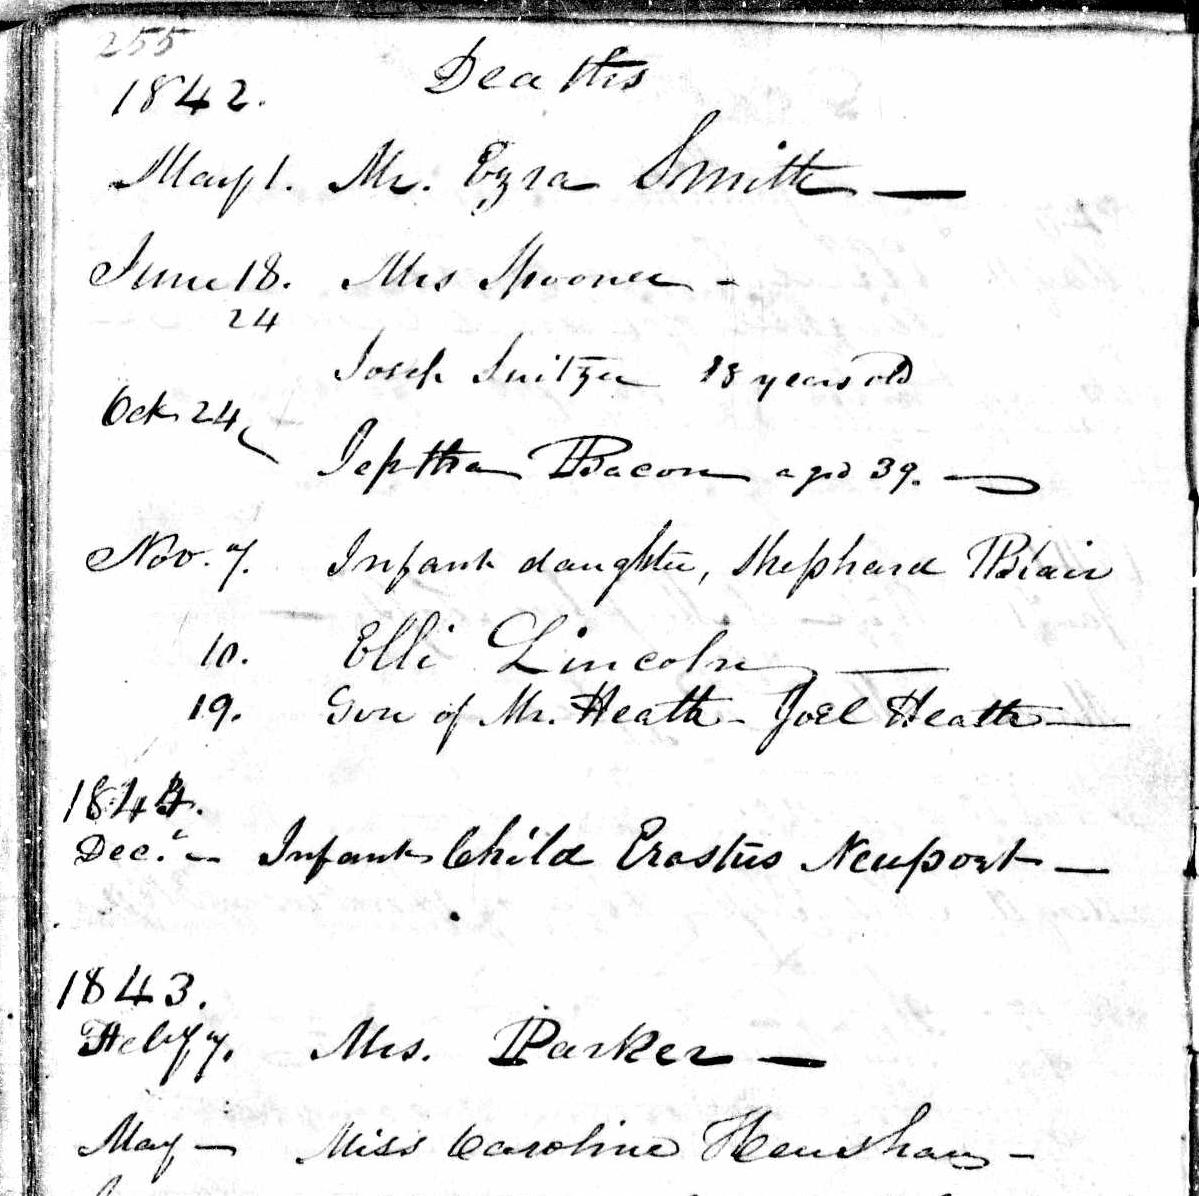 255
Deaths
1842.
May 1. Mr. Ezra Smith
June 18. Mrs Spooner
24
Joseph Snitzer 18 years old
Oct 24
Jeptha Bacon agd 39.
Nov. 7. Infant daughter, Shephard Blair
10. Elli Lincoln
19. Son of Mr. Heath - Joel Heath
Dec. Infant Child Erastus Newport
1843.
Feby 7. Mrs. Parker
May Miss Caroline Henshaw